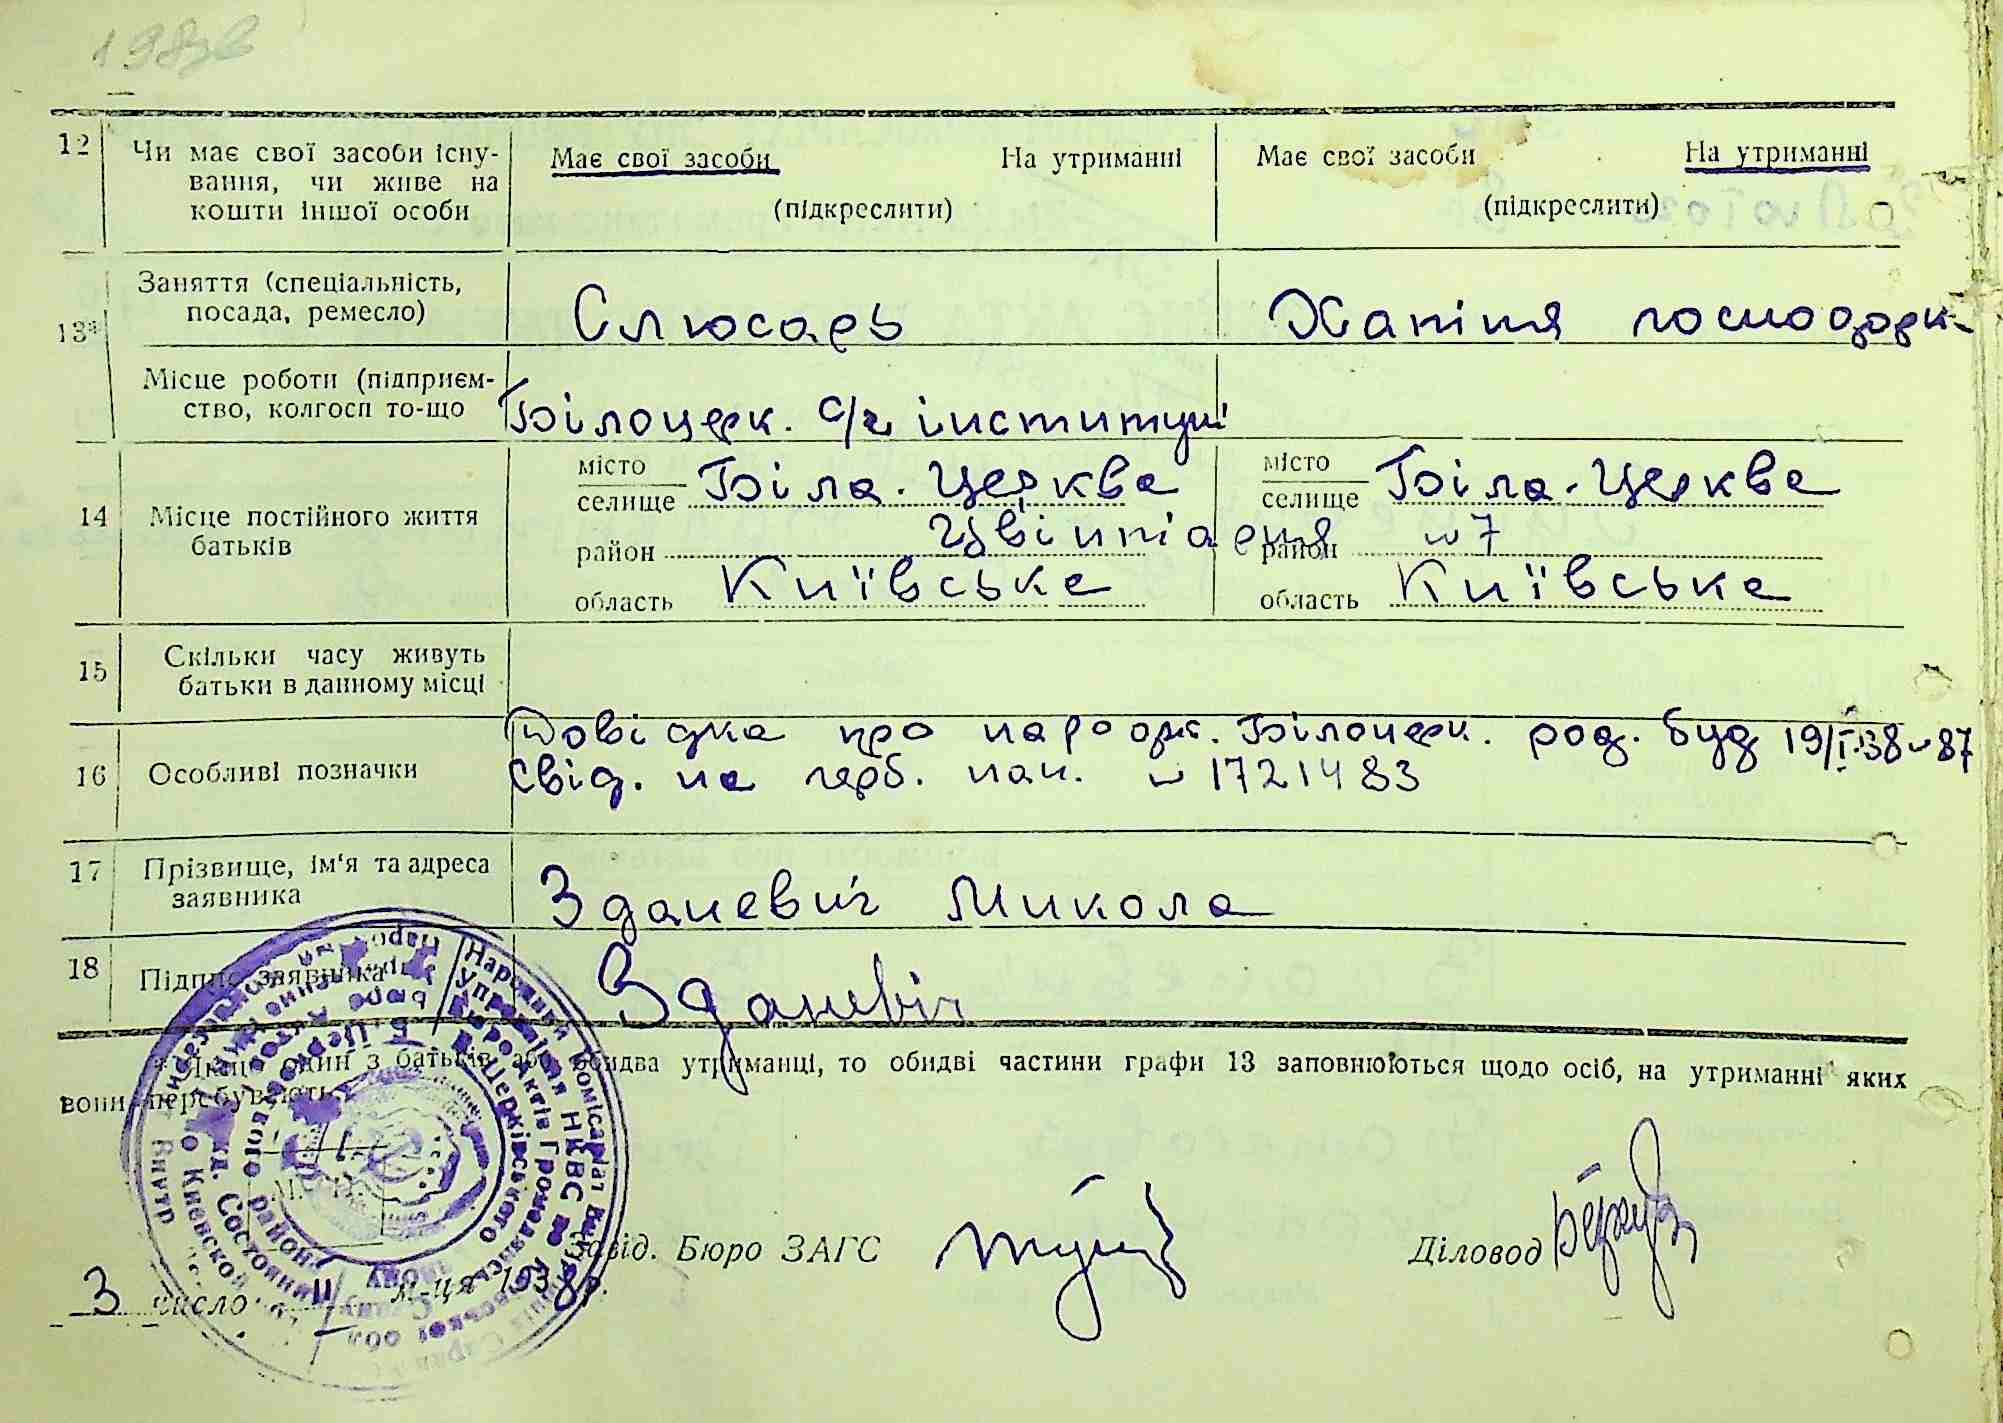 12 Чи має свої засоби існу- Має свої засоби На утриманні Має свої засоби На утриманні
вання, чи живе на
кошти іншої особи (підкреслити) (підкреслити)
13* Заняття (спеціальність,
посада, ремесло) Слюсарь Хатіня господарк.
Місце роботи (підприєм-
ство, колгосп то-що Білоцерк. с/г інститут
14 Місце постійного життя
батьків
місто
селище Біла-Церква місто
селище Біла-Церква
район район № 7
область Київське область Київське
15 Скільки часу живуть
батьки в данному місці
16 Особливі позначки Довідка про народж. Білоцерк. род. буд 19/I.38 № 87
Свід. на герб. пап. № 1721483
17 Прізвище, ім'я та адреса
заявника Зданевич Микола
18 Підпис заявника Зданевіч
* Якщо один з батьків або обидва утриманці, то обидві частини графи 13 заповнюються щодо осіб, на утриманні яких
вони перебувають.
М. П.
Завід. Бюро ЗАГС Діловод
3 число II м-ця 1938 р.
Народний Комісаріат
Управління НКВС по
Бюро Актів Громадянськ
Б. Церківського району